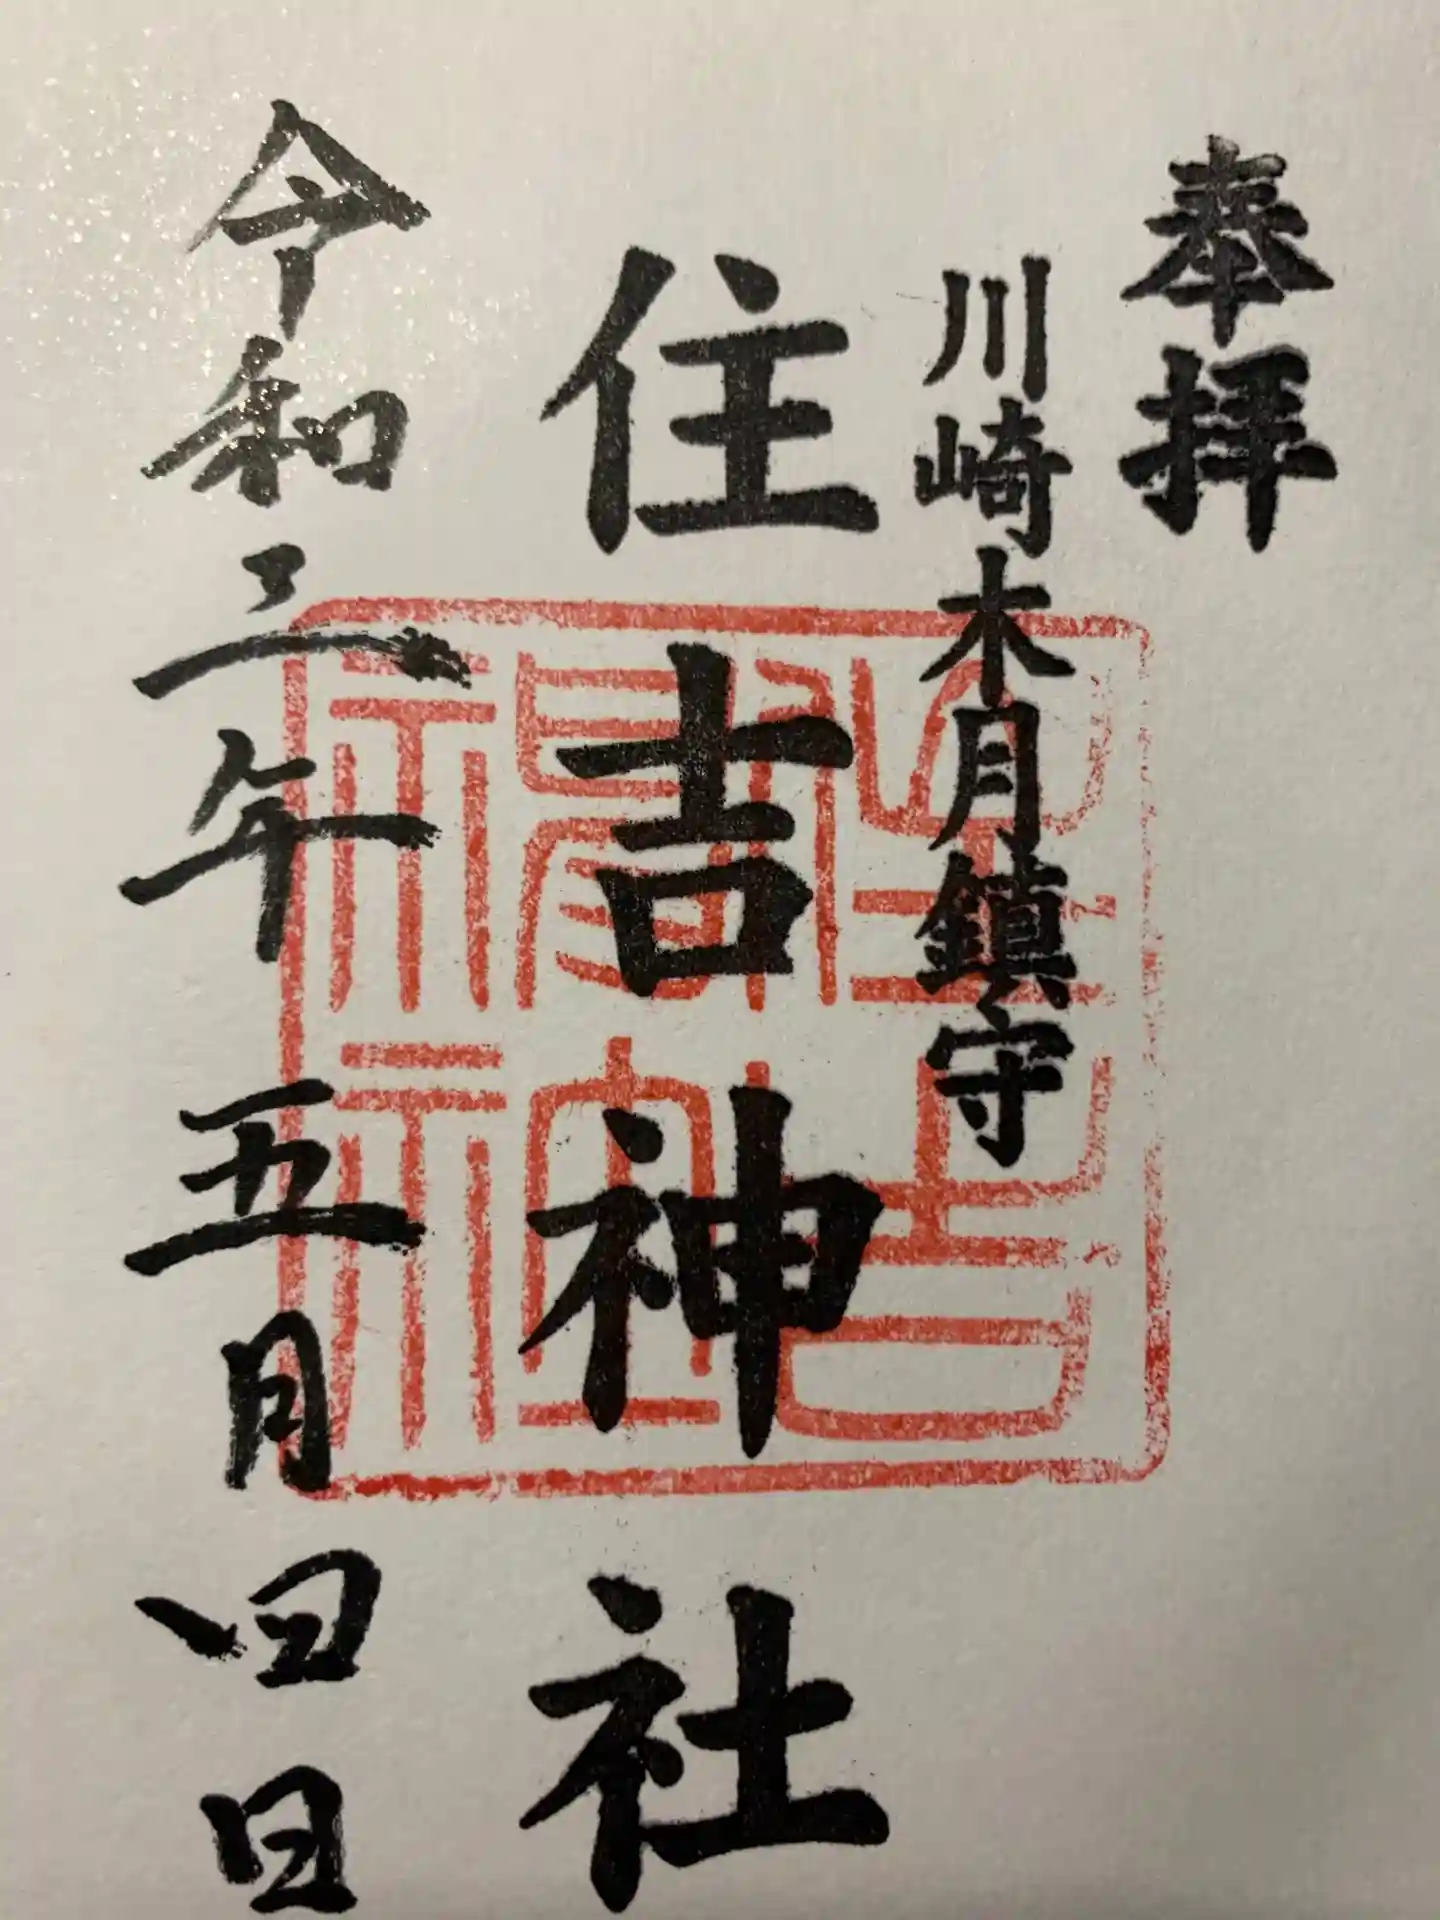 奉拝
川崎木月鎮守
住吉神社
令和三年五月四日
住吉
神社